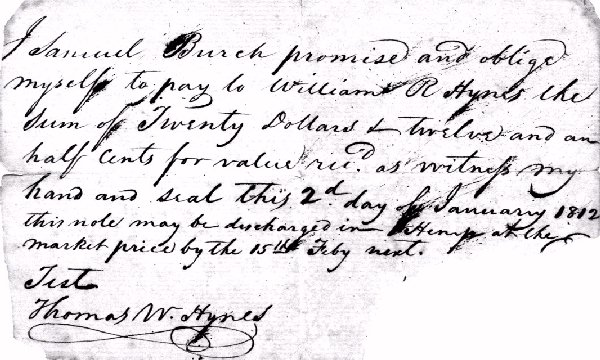 I Samuel Burch promise and oblige
myself to pay to William R Hynes the
Sum of Twenty Dollars & twelve and an
half Cents for value rec.d as witness my
hand and seal this 2d. day of January 1812
this note may be discharged in Hemp at the
market price by the 15th Feby next.
Test
Thomas W. Hynes